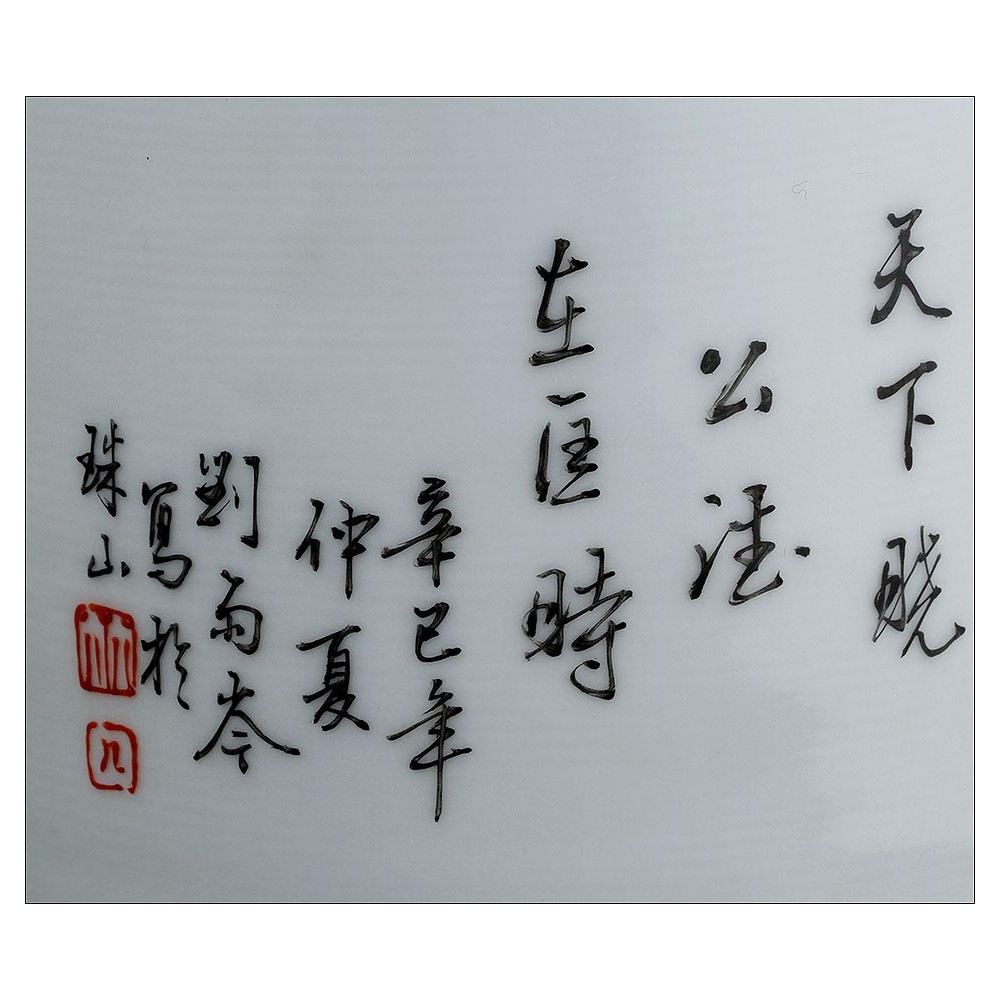 天下晓
公鸡
在一唱時
辛巳年
仲夏
劉雨岑
寫於
珠山